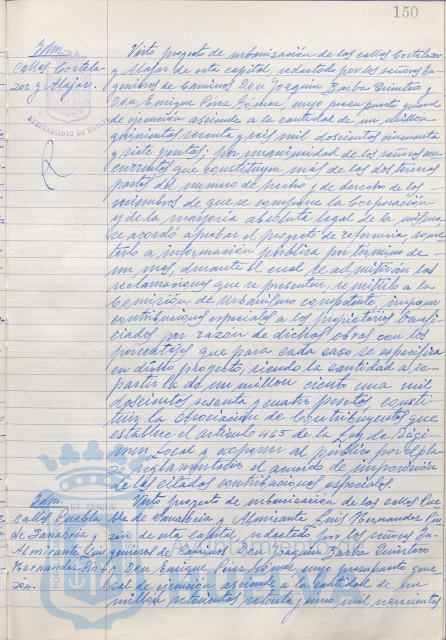 150
Idem.
calles Cortela-
zor y Alajar.
AYUNTAMIENTO DE HUELVA
Visto proyecto de urbanización de las calles Cortelazor
y Alajar de esta capital, redactado por los señores In-
genieros de Caminos Don Joaquin Barba Quintero y
Don Enrique Pires Gómez, cuyo presupuesto general
de ejecución asciende a la cantidad de un millón
quinientas seis mil doscientas cincuenta
y siete pesetas; por unanimidad de los señores con-
currentes que constituyen más de las dos terceras
partes del numero de hecho y de derecho de los
miembros de que se compone la Corporación
y de la mayoría absoluta legal de la misma
se acordó aprobar el proyecto de referencia, some-
terlo a información pública por término de
un mes, durante el cual se admitirán las
reclamaciones que se presenten, remitirlo a la
Comisión de Urbanismo competente, imponer
contribuciones especiales a los propietarios benefi-
ciados por razón de dichas obras con los
porcentajes que para cada caso se especifica
en dicho proyecto, siendo la cantidad a re-
partir la de un millon ciento una mil
doscientas sesenta y cuatro pesetas consti-
tuir la Asociación de Contribuyentes que
establece el artículo 465 de la Ley de Régi-
men Local y exponer al público por el pla-
zo reglamentario el acuerdo de imposición
de las citadas contribuciones especiales.
Idem.
calles Puebla
de Sanabria y
Almirante Luis
Hernandez Pin-
zón.
Visto proyecto de urbanización de las calles Pue-
bla de Sanabria y Almirante Luis Hernandez Pin-
zón de esta capital, redactado por los señores In-
genieros de Caminos Don Joaquin Barba Quintero
y Don Enrique Pires Gómez cuyo presupuesto gene-
ral de ejecución asciende a la cantidad de un
millón setecientas y cinco mil novecientas